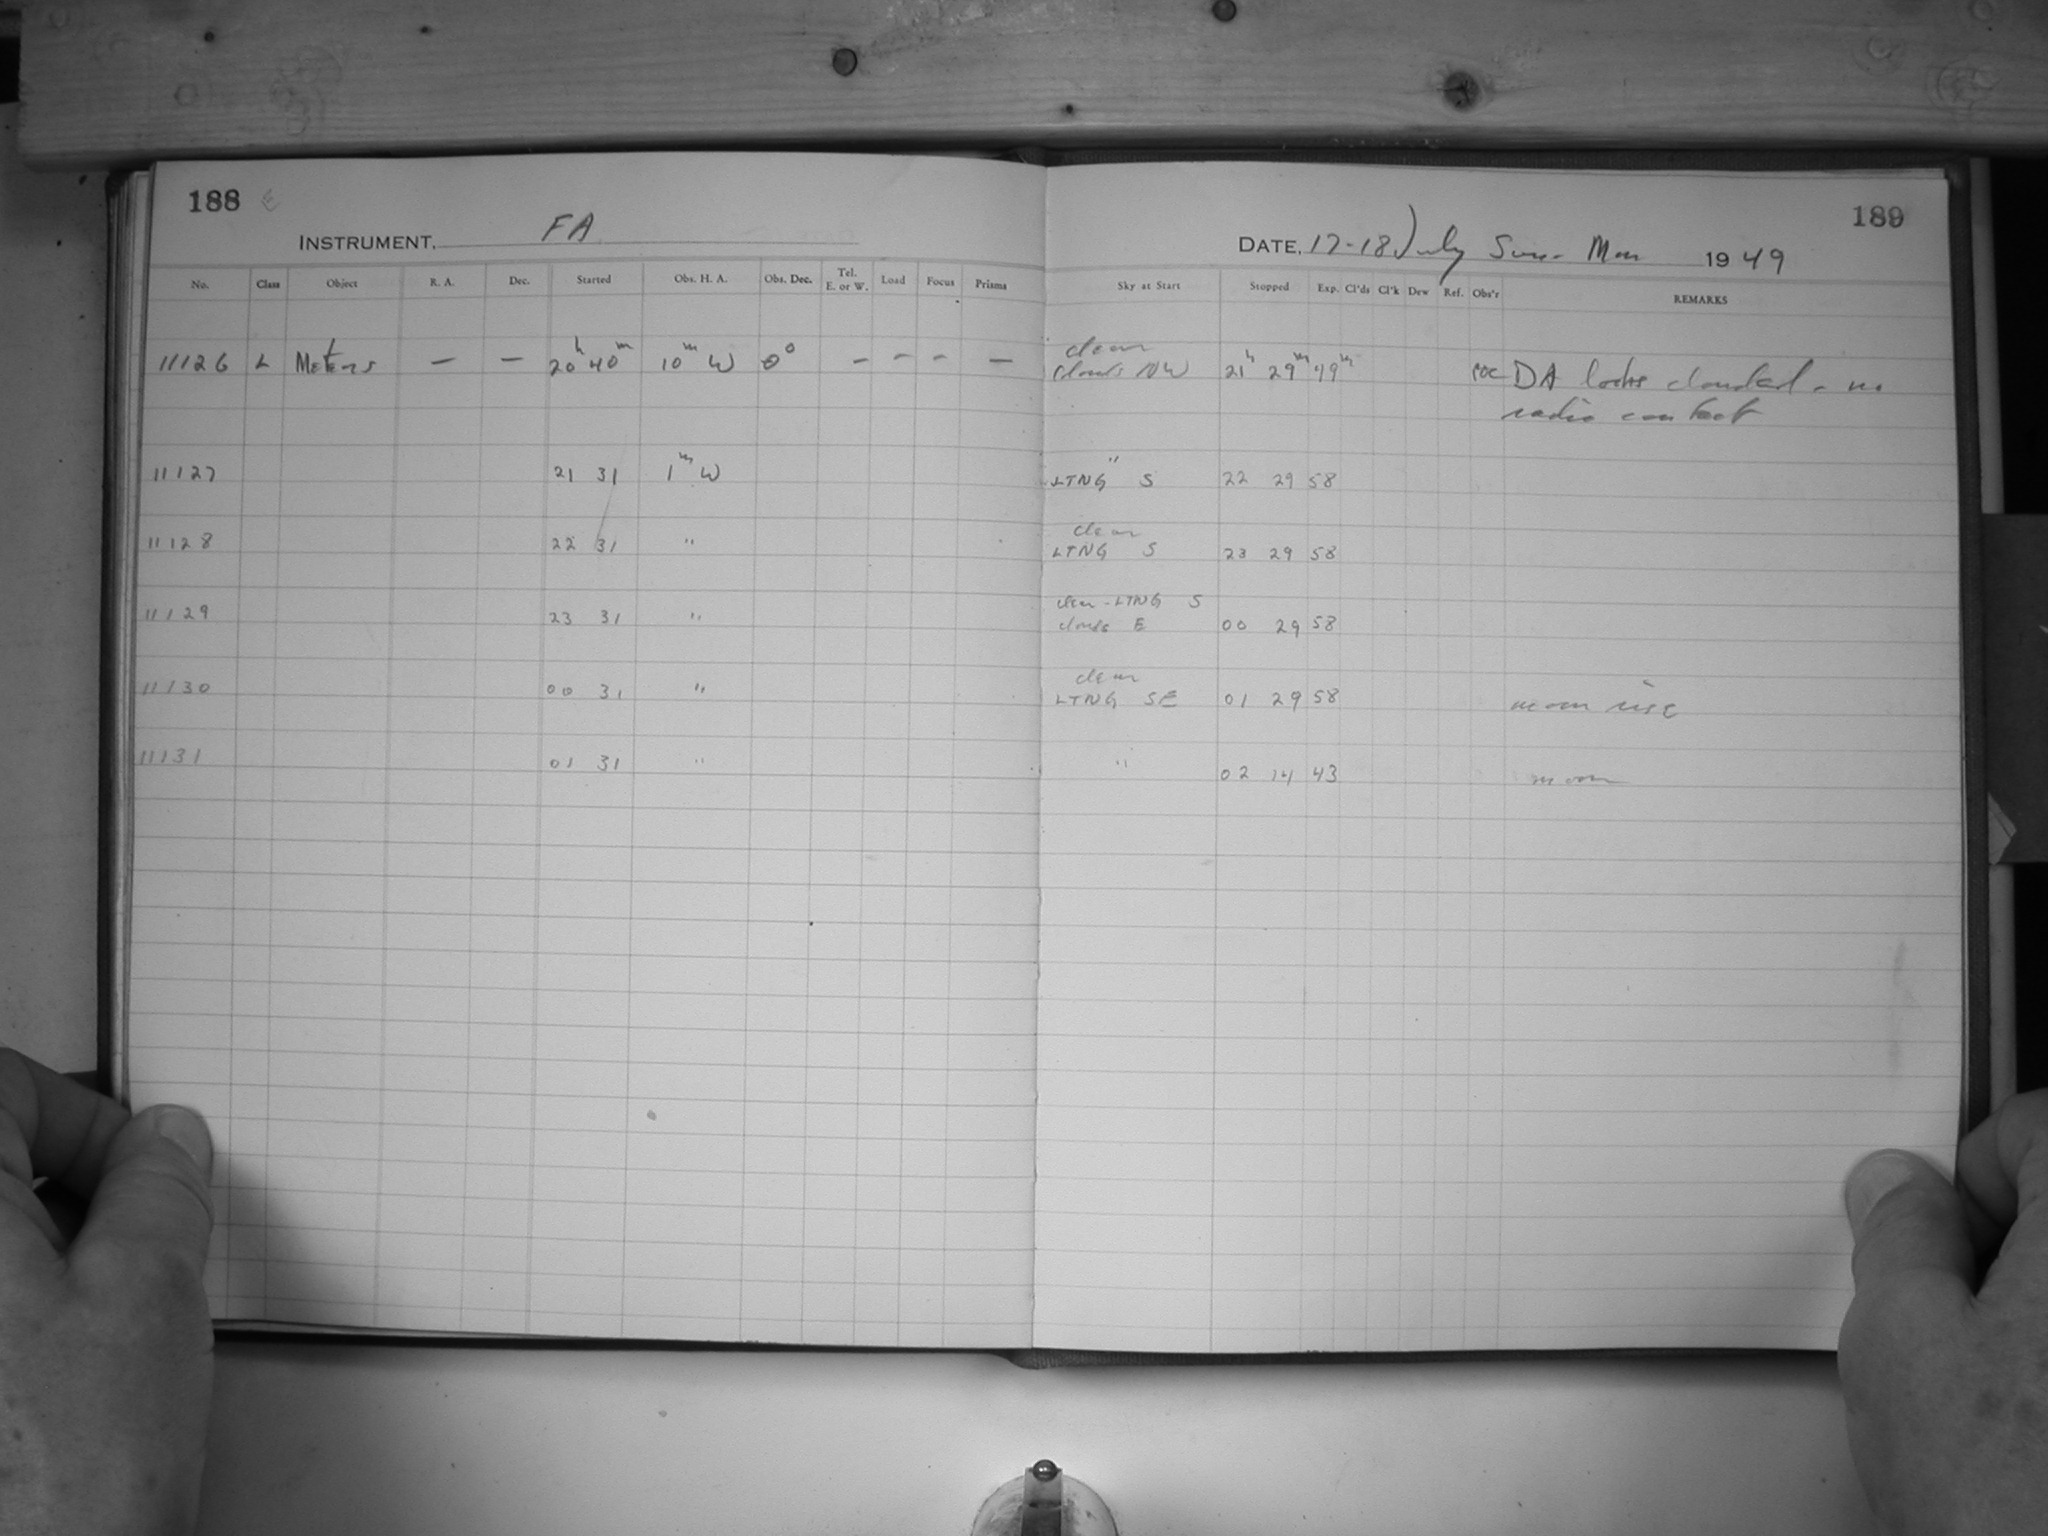 188
INSTRUMENT. FA
No. Class Object R. A. Dec. Started Obs. H. A. Obs. Dec. Tel. E. or W. Load Focus Prisms
11126 L Meteors — — 20h 40m 10m W 0° - - - —
11127 21 31 1m W
11128 22 31 "
11129 23 31 "
11130 00 31 "
11131 01 31 "
189
DATE, 17-18 July Sun - Mon 1949
Sky at Start Stopped Exp. Cl'ds Cl'k Dew Ref. Obs'r REMARKS
clear
clouds NW 21h 29m 49m DA looks clouded - no
radio contact
"
LTNG S 22 29 58
clear
LTNG S 23 29 58
clear - LTNG S
clouds E 00 29 58
clear
LTNG SE 01 29 58 moon rise
" 02 14 43 moon